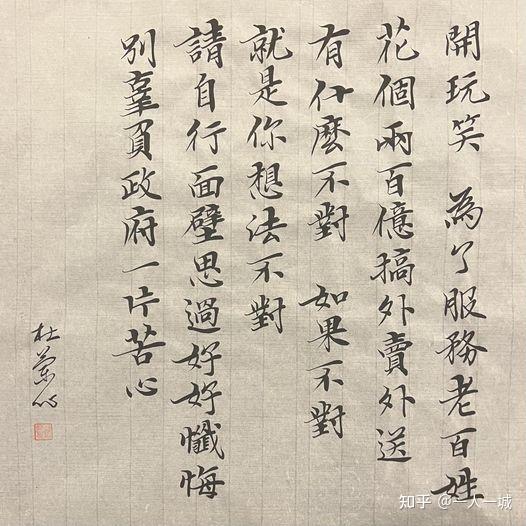 開玩笑 為了服務老百姓
花個兩百億搞外賣外送
有什麼不對 如果不對
就是你想法不對
請自行面壁思過好好懺悔
別辜負政府一片苦心
杜
知乎 @一人一城